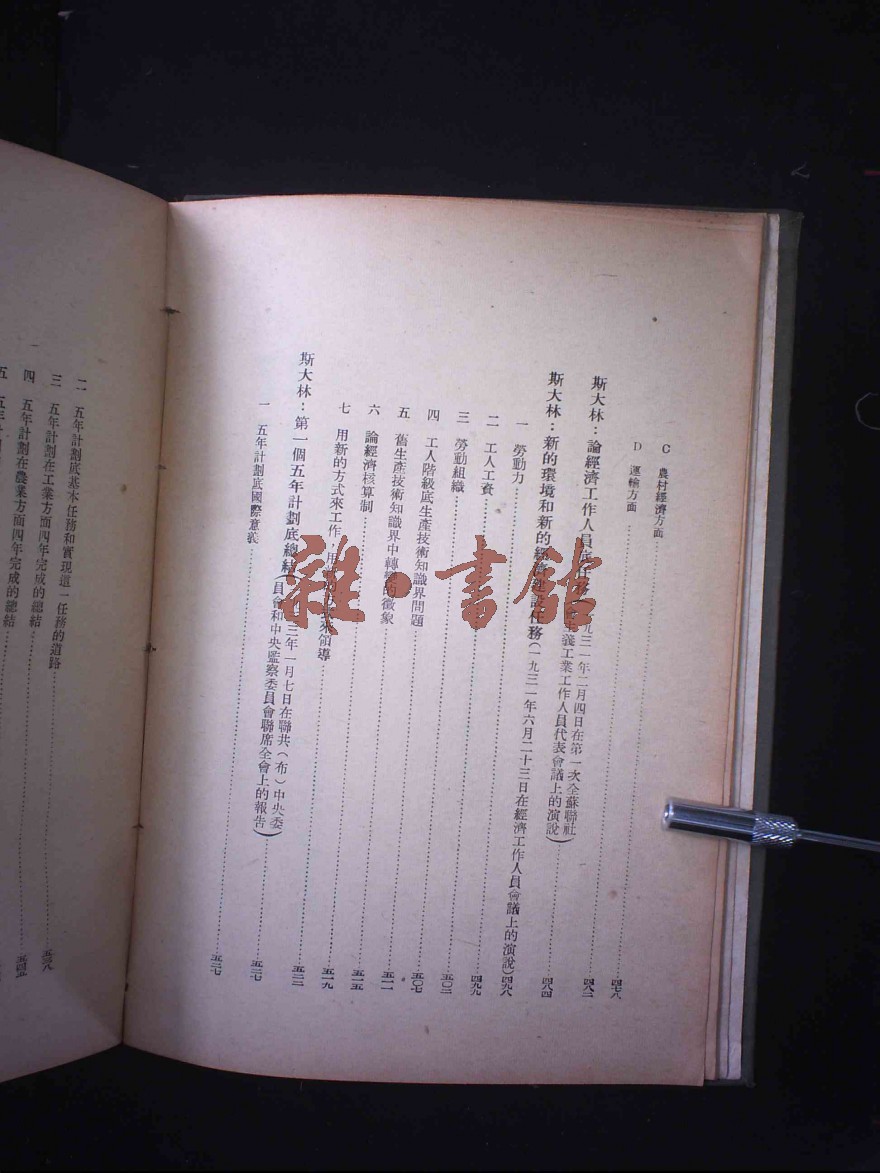 C 農村經濟方面……四七八
D 運輸方面……四八二
斯大林：論經濟工作人員底任務 九三一年二月四日在第一次全蘇聯社
主義工業工作人員代表會議上的演說)……四八四
斯大林：新的環境和新的經濟建設任務(一九三一年六月二十三日在經濟工作人員會議上的演說)四九八
一 勞動力……四九九
二 工人工資……五〇三
三 勞動組織……五〇七
四 工人階級底生產技術知識界問題……五一一
五 舊生產技術知識界中轉變的徵象……五一五
六 論經濟核算制……五一九
七 用新的方式來工作，用 來領導……五二二
斯大林：第一個五年計劃底總結( 三年一月七日在聯共(布)中央委
員會和中央監察委員會聯席全會上的報告)……五二七
一 五年計劃底國際意義……五二七
二 五年計劃底基本任務和實現這一任務的道路
三 五年計劃在工業方面四年完成的總結……五三八
四 五年計劃在農業方面四年完成的總結……五四五
五 五年計劃
雜·書館